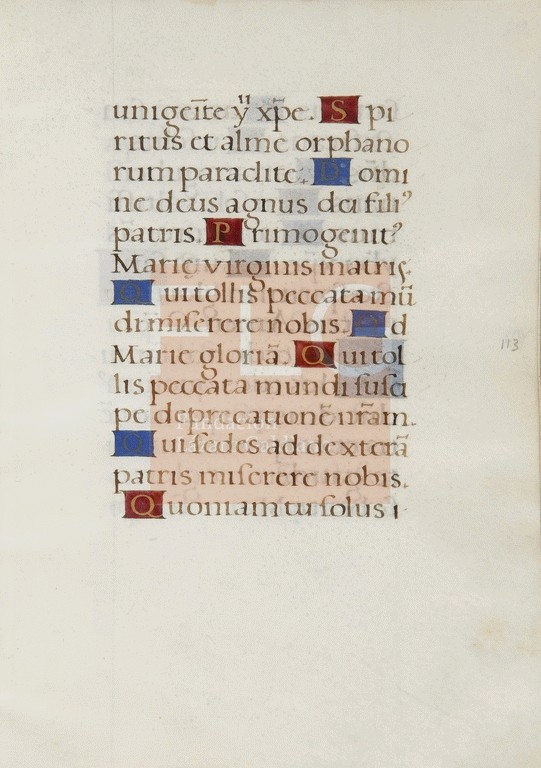 unigeĩte ỹ xp̃e. Spi
ritus et alme orphano
rum paradite. Domi
ne deus agnus dei fili⁹
patris. Primogenit⁹
Marię virginis matris.
Qui tollis peccata mũ
di miserere nobis. Ad
Marie gloriã. Qui tol
lis peccata mundi susci
pe deprecationẽ nr̃am.
Qui sedes ad dexterã
patris miserere nobis.
Quoniam tu solus i
113